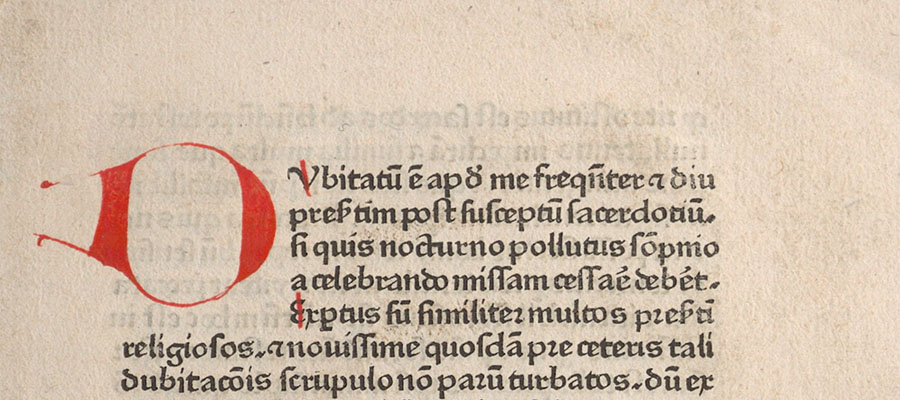 DVbitatū ē apđ me freqūter ⁊ diu
preẜtim post susceptū sacerdotiū.
si quis nocturno pollutus sōpnio
a celebrando missam cessaē debēt.
Exꝑtus sū similiter multos preẜtī
religiosos.⁊ nouissime quosdā pre ceteris tali
dubitacōis scrupulo nō parū turbatos. dū ex